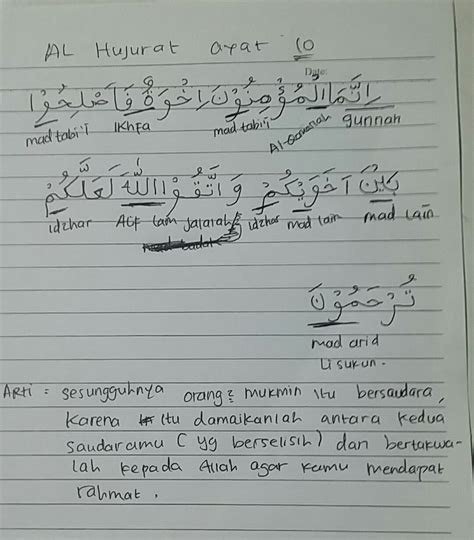 AL Hujurat ayat 10
Date:
اِنَّمَا الْمُؤْمِنُوْنَ اِخْوَةٌ فَاَصْلِحُوْا
mad tabi'i ikhfa mad tabi'i Al-Qomariah gunnah
بَيْنَ اَخَوَيْكُمْ وَاتَّقُوا اللّٰهَ لَعَلَّكُمْ
idzhar Alif lam jalalah idzhar mad lain mad lain
تُرْحَمُوْنَ
mad arid
Lisukun.
Arti = sesungguhnya orang2 mukmin itu bersaudara,
karena itu damaikanlah antara kedua
saudaramu (yg berselisih) dan bertakwa-
lah kepada Allah agar kamu mendapat
rahmat.